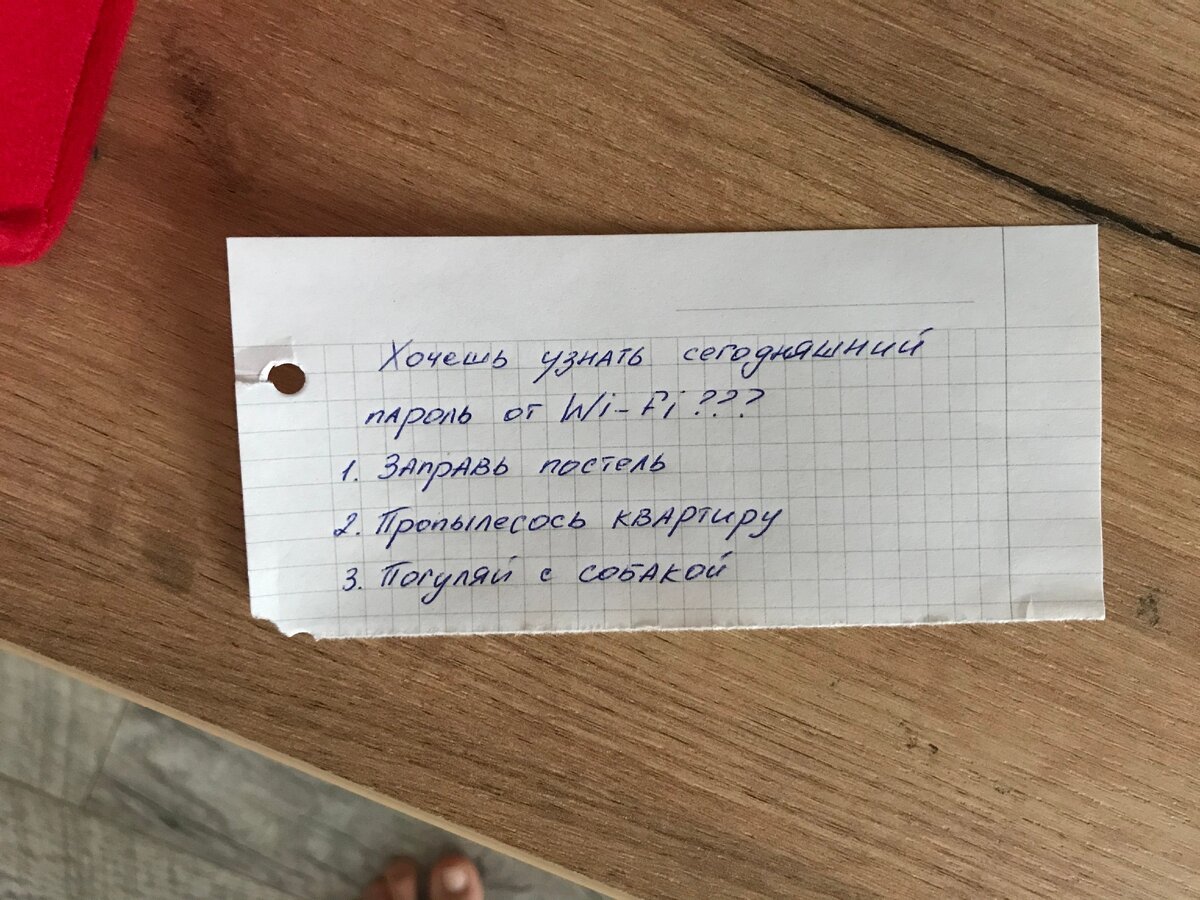 Хочешь узнать сегодняшний
пароль от Wi-Fi???
1. Заправь постель
2. Пропылесось квартиру
3. Погуляй с собакой